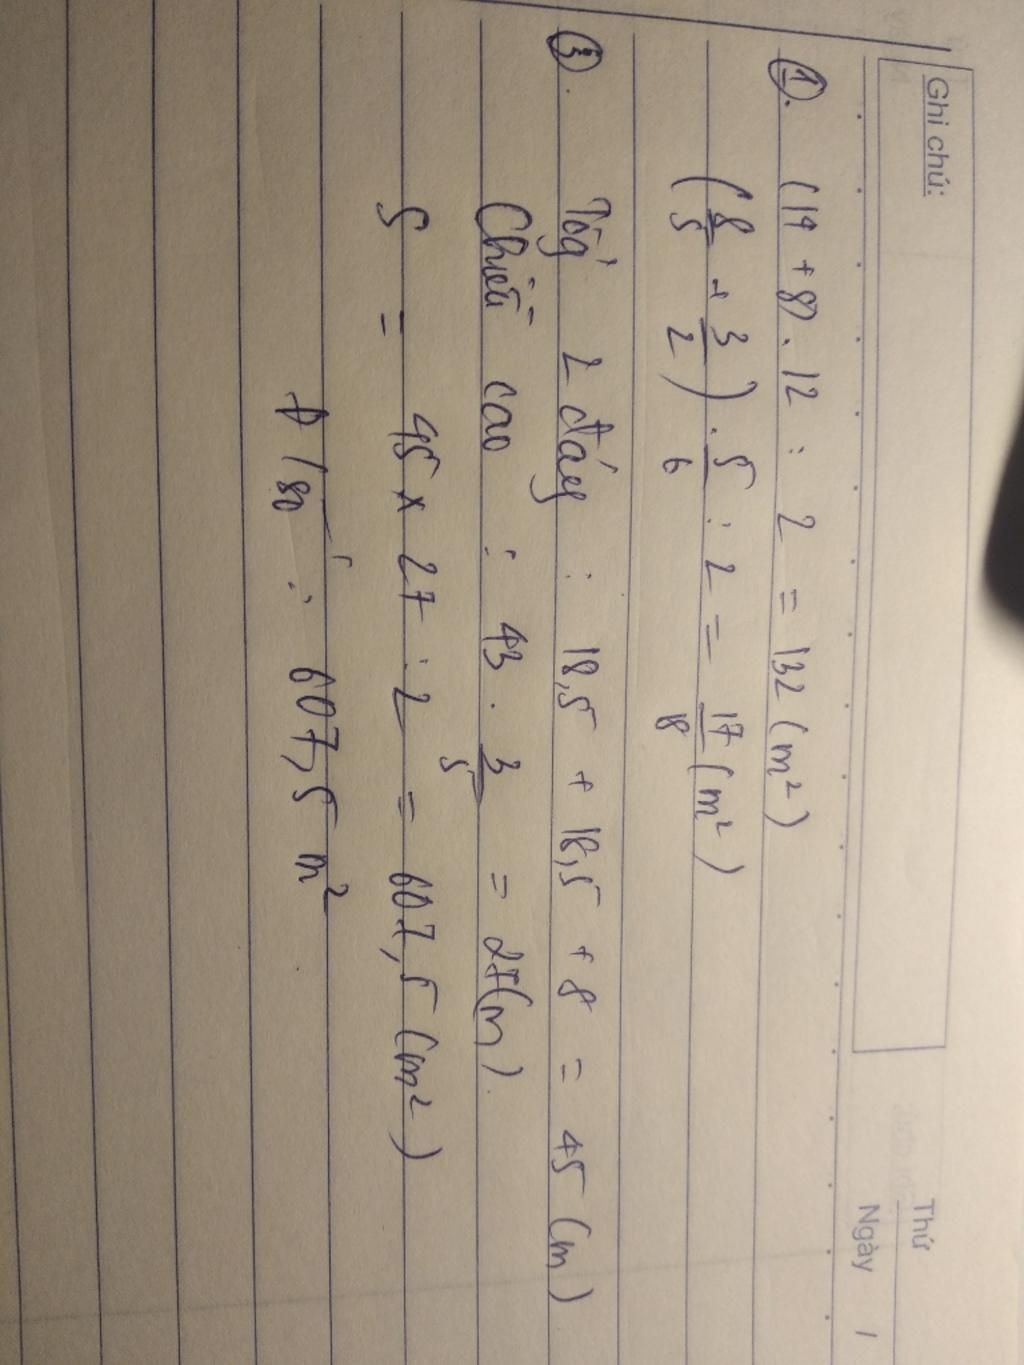 Ghi chú:
Thứ
Ngày /
①. (14 + 8) . 12 : 2 = 132 (m²)
(8/5 + 3/2) . 5/6 : 2 = 17/18 (m²)
③. Tổng 2 đáy : 18,5 + 18,5 + 8 = 45 (m)
Chiều cao : 43 . 3/5 = 27(m).
S = 45 x 27 : 2 = 607,5 (m²)
: 607,5 m²